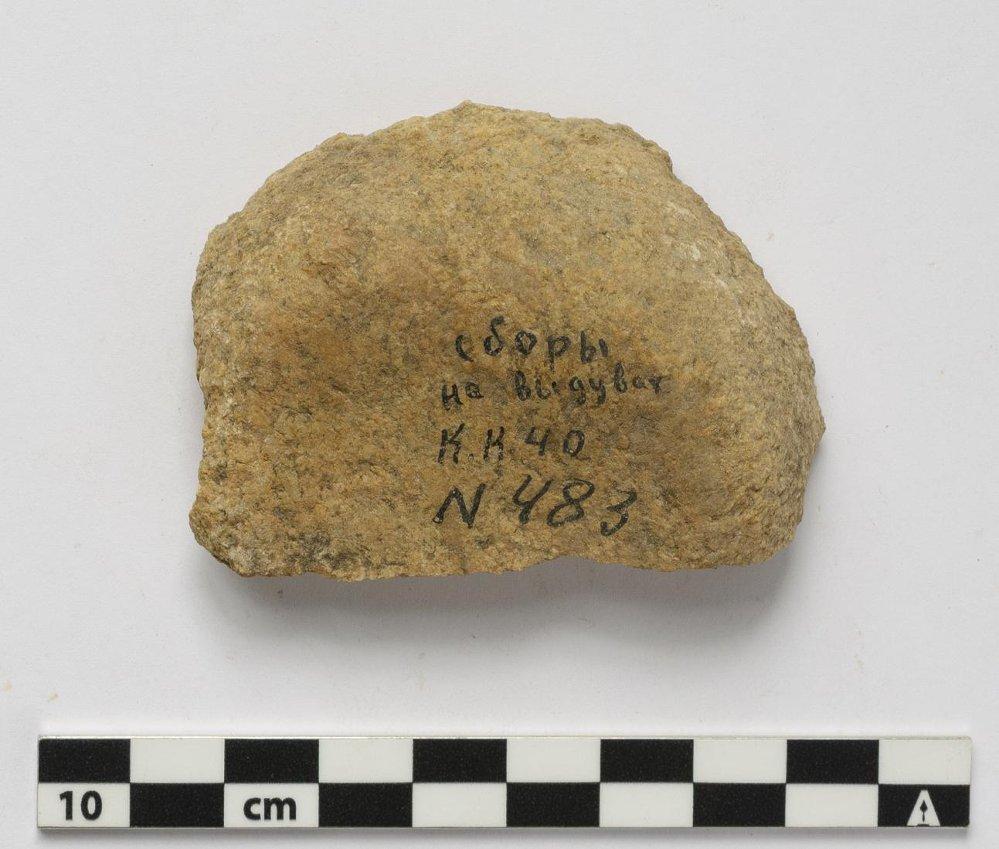 сборы
на выдувах
К.К. 40
N 483
10 cm